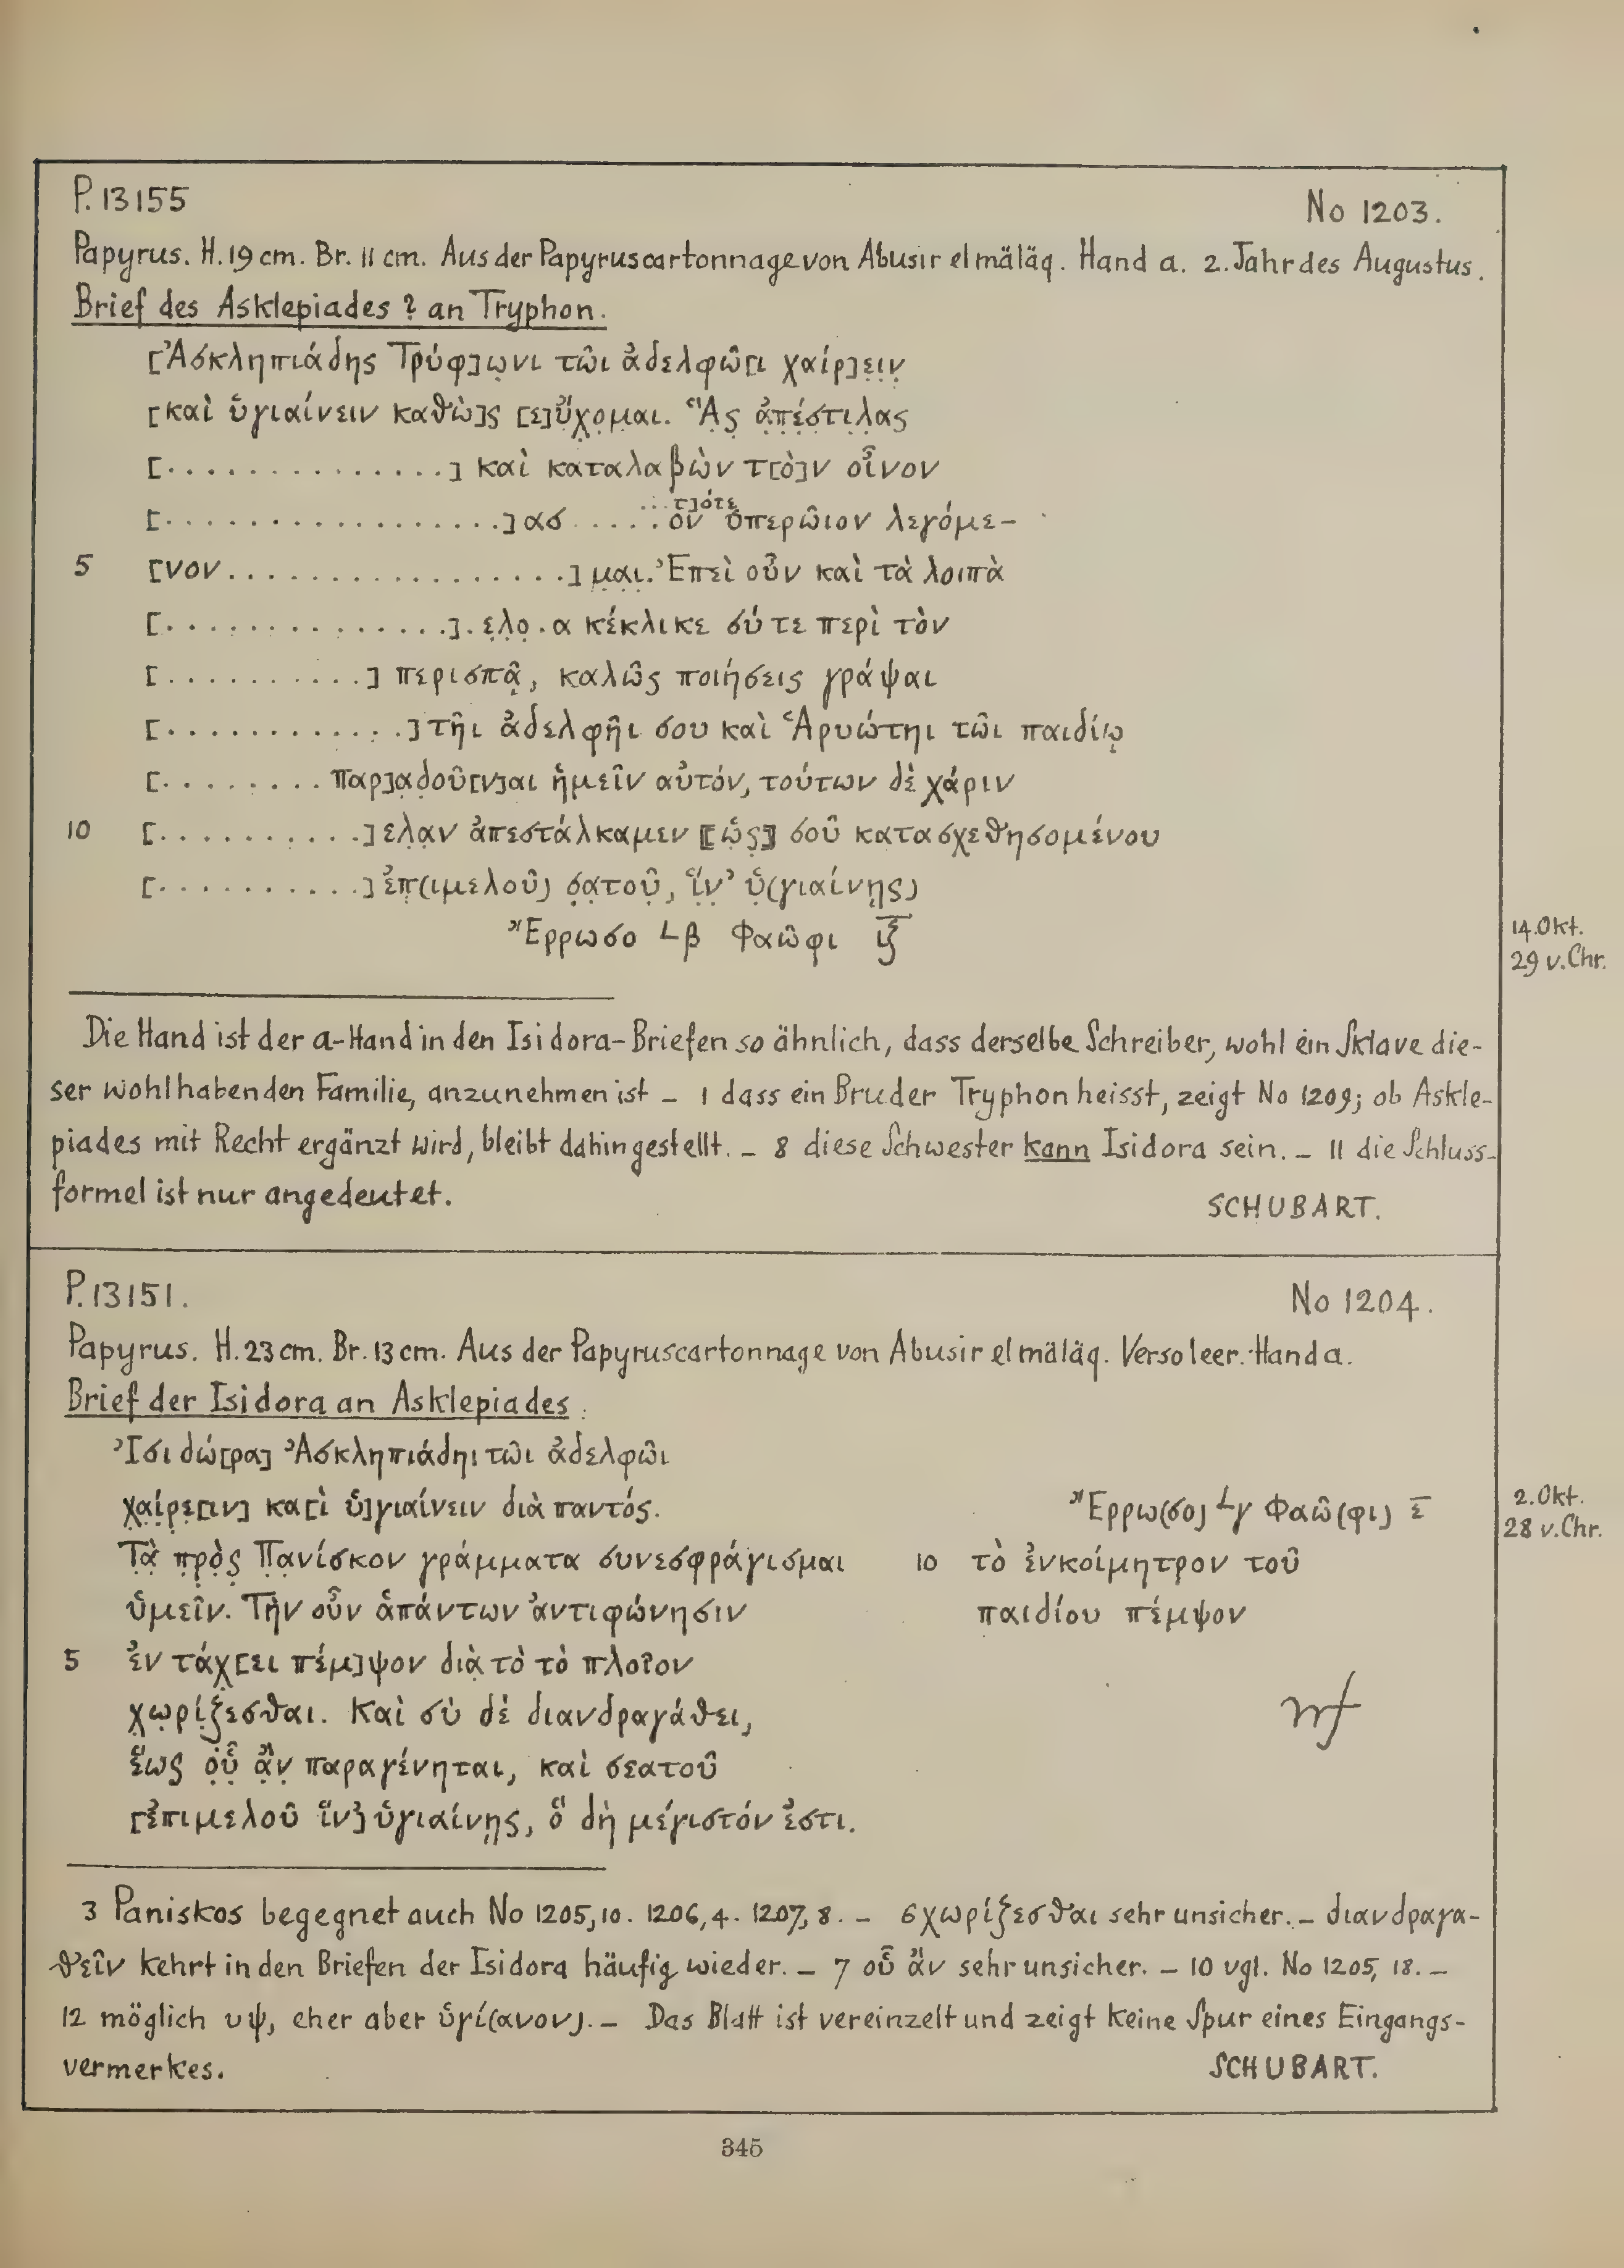 P. 13155
No 1203.
Papyrus. H. 19 cm. Br. 11 cm. Aus der Papyruscartonnage von Abusir el mäläq. Hand a. 2. Jahr des Augustus.
Brief des Asklepiades ? an Tryphon.
[Ἀσκληπιάδης Τρύφ]ω̣νι τῶι ἀδελφῶ[ι χαίρ]ε̣ι̣ν̣
[καὶ ὑγιαίνειν καθὼ]ς [ε]ὔ̣χο̣μ̣αι. Ἃ̣ς̣ ἀ̣π̣έ̣σ̣τι̣λ̣ας
[. . . . . . . . . . . . . .] καὶ καταλαβὼν τ[ὸ]ν οἶνον
[. . . . . . . . . . . . . . . . .]ασ . . . . . ὸν ὑπερῶιον λεγόμε-
. . . τ]ότε̣
5 [νον. . . . . . . . . . . . . . . . .] μ̣α̣ι̣. Ἐπεὶ οὖν καὶ τὰ λοιπὰ
[. . . . . . . . . . . . . .]. ε̣λ̣ο̣ . α κέκλικε σύ τε περὶ τὸν
[. . . . . . . . . .] περισπᾷ̣, καλῶς ποιήσεις γράψαι
[. . . . . . . . . . . .] τῆι ἀδελφῆι σου καὶ Ἁρυώτηι τῶι παιδίῳ
[. . . . . . . . παρ]α̣δ̣οῦ[ν]αι ἡμεῖν αὐτόν, τούτων δὲ χάριν
10 [. . . . . . . . . .] ελ̣α̣ν ἀπεστάλκαμεν ⟦ὡ̣ς̣⟧ σοῦ κατασχεθησομένου
[. . . . . . . . . .] ἐπ̣(ιμελοῦ) σ̣α̣τοῦ̣, ἵ̣ν̣’ ὑ̣(γιαίνῃς)
Ἔρρωσο L β Φαῶφι ι̅ζ̅
14. Okt.
29 v. Chr.
Die Hand ist der a-Hand in den Isidora-Briefen so ähnlich, dass derselbe Schreiber, wohl ein Sklave die-
ser wohlhabenden Familie, anzunehmen ist – 1 dass ein Bruder Tryphon heisst, zeigt No 1209; ob Askle-
piades mit Recht ergänzt wird, bleibt dahingestellt. – 8 diese Schwester kann Isidora sein. – 11 die Schluss-
formel ist nur angedeutet.
SCHUBART.
P. 13151.
No 1204.
Papyrus. H. 23 cm. Br. 13 cm. Aus der Papyruscartonnage von Abusir el mäläq. Verso leer. Hand a.
Brief der Isidora an Asklepiades.
Ἰσιδώ[ρα] Ἀσκληπιάδηι τῶι ἀδελφῶι
χ̣α̣ί̣ρ̣ε̣[ιν] κα[ὶ ὑ]γιαίνειν διὰ παντός.
Τ̣ὰ̣ π̣ρ̣ὸ̣ς̣ Π̣α̣νίσκον γράμματα συνεσφράγισμαι
ὑμεῖν. Τὴν οὖν ἁπάντων ἀντιφώνησιν
5 ἐν τάχ̣[ει πέμ]ψον διὰ̣ τὸ τὸ πλοῖον
χ̣ω̣ρί̣ζ̣εσθαι. Καὶ σὺ δὲ διανδραγάθει,
ἕ̣ως ο̣ὗ̣ ἂ̣ν̣ παραγένηται, καὶ σεατοῦ
[ἐπιμελοῦ ἵν’] ὑγιαίνῃς, ὃ δὴ μέγιστόν ἐστι.
Ἔρρω(σο) L γ Φαῶ(φι) ε̅
10 τὸ ἐνκοίμητρον τοῦ
παιδίου πέμψον
2. Okt.
28 v. Chr.
3 Paniskos begegnet auch No 1205, 10. 1206, 4. 1207, 8. – 6 χωρίζεσθαι sehr unsicher. – διανδραγα-
θεῖν kehrt in den Briefen der Isidora häufig wieder. – 7 οὗ ἂν sehr unsicher. – 10 vgl. No 1205, 18. –
12 möglich υψ, eher aber ὑγί(ανον). – Das Blatt ist vereinzelt und zeigt keine Spur eines Eingangs-
vermerkes.
SCHUBART.
345